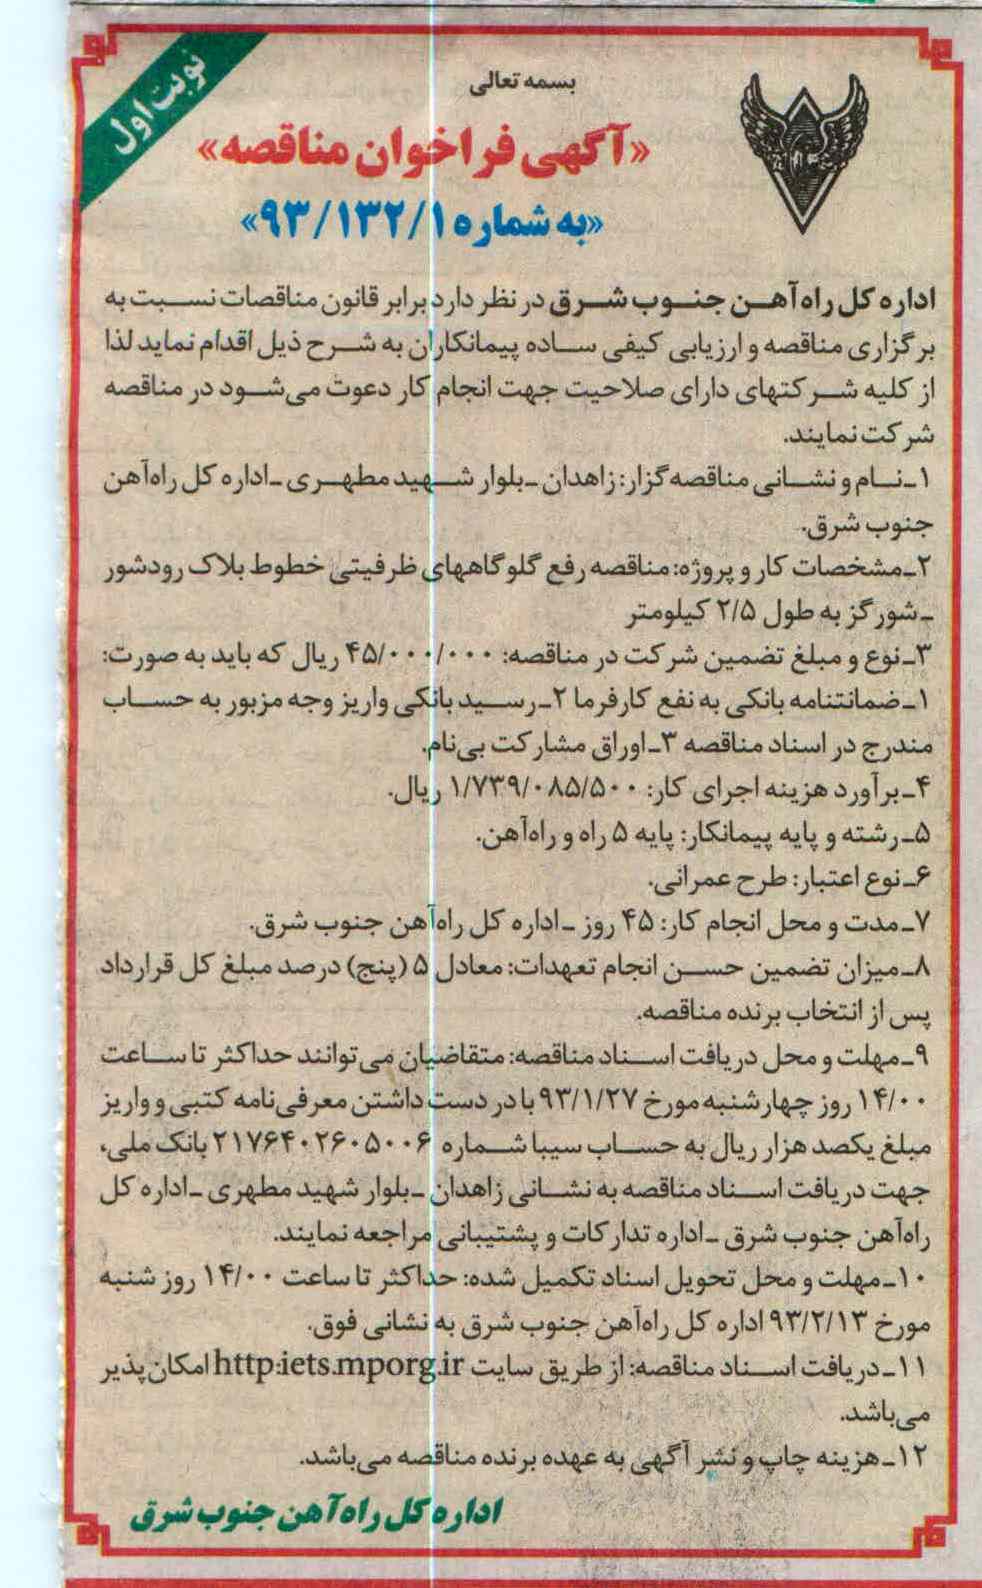 نوبت اول
بسمه تعالی
«آگهی فراخوان مناقصه»
«به شماره ۹۳/۱۳۲/۱»
اداره کل راه‌آهن جنوب شرق در نظر دارد برابر قانون مناقصات نسبت به
برگزاری مناقصه و ارزیابی کیفی ساده پیمانکاران به شرح ذیل اقدام نماید لذا
از کلیه شرکتهای دارای صلاحیت جهت انجام کار دعوت می‌شود در مناقصه
شرکت نمایند.
۱ـ نام و نشانی مناقصه‌گزار: زاهدان ـ بلوار شهید مطهری ـ اداره کل راه‌آهن
جنوب شرق.
۲ـ مشخصات کار و پروژه: مناقصه رفع گلوگاههای ظرفیتی خطوط بلاک رودشور
ـ شورگز به طول ۲/۵ کیلومتر
۳ـ نوع و مبلغ تضمین شرکت در مناقصه: ۴۵/۰۰۰/۰۰۰ ریال که باید به صورت:
۱ـ ضمانتنامه بانکی به نفع کارفرما ۲ـ رسید بانکی واریز وجه مزبور به حساب
مندرج در اسناد مناقصه ۳ـ اوراق مشارکت بی‌نام.
۴ـ برآورد هزینه اجرای کار: ۱/۷۳۹/۰۸۵/۵۰۰ ریال.
۵ـ رشته و پایه پیمانکار: پایه ۵ راه و راه‌آهن.
۶ـ نوع اعتبار: طرح عمرانی.
۷ـ مدت و محل انجام کار: ۴۵ روز ـ اداره کل راه‌آهن جنوب شرق.
۸ـ میزان تضمین حسن انجام تعهدات: معادل ۵ (پنج) درصد مبلغ کل قرارداد
پس از انتخاب برنده مناقصه.
۹ـ مهلت و محل دریافت اسناد مناقصه: متقاضیان می‌توانند حداکثر تا ساعت
۱۴/۰۰ روز چهارشنبه مورخ ۹۳/۱/۲۷ با در دست داشتن معرفی‌نامه کتبی و واریز
مبلغ یکصد هزار ریال به حساب سیبا شماره ۲۱۷۶۴۰۲۶۰۵۰۰۶ بانک ملی،
جهت دریافت اسناد مناقصه به نشانی زاهدان ـ بلوار شهید مطهری ـ اداره کل
راه‌آهن جنوب شرق ـ اداره تدارکات و پشتیبانی مراجعه نمایند.
۱۰ـ مهلت و محل تحویل اسناد تکمیل شده: حداکثر تا ساعت ۱۴/۰۰ روز شنبه
مورخ ۹۳/۲/۱۳ اداره کل راه‌آهن جنوب شرق به نشانی فوق.
۱۱ـ دریافت اسناد مناقصه: از طریق سایت http:iets.mporg.ir امکان‌پذیر
می‌باشد.
۱۲ـ هزینه چاپ و نشر آگهی به عهده برنده مناقصه می‌باشد.
اداره کل راه‌آهن جنوب شرق